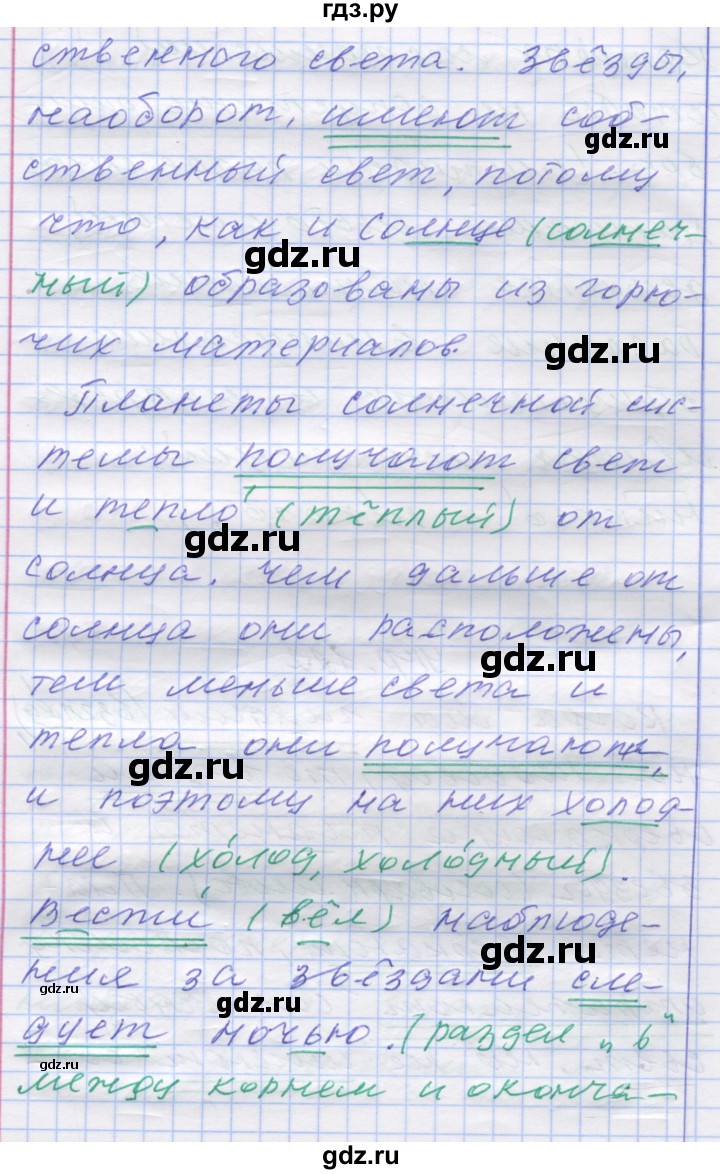 гдз.ру
ственного света. Звёзды,
наоборот, имеют соб-
gdz.ru
ственный свет, потому
что, как и Солнце (солнеч-
gdz.ru
ный) образованы из горю-
чих материалов.
gdz.ru
Планеты солнечной сис-
темы получают свет
и тепло (тёплый) от
gdz.ru
солнца. Чем дальше от
солнца они расположены,
gdz.ru
тем меньше света и
тепла они получают,
gdz.ru
и поэтому на них холод-
нее (хо́лод, холо́дный).
Вести́ (вёл) наблюде-
gdz.ru
ния за звёздами сле-
gdz.ru
gdz.ru
дует ночью. (раздел „ь"
gdz.ru
между корнем и оконча-
gdz.ru